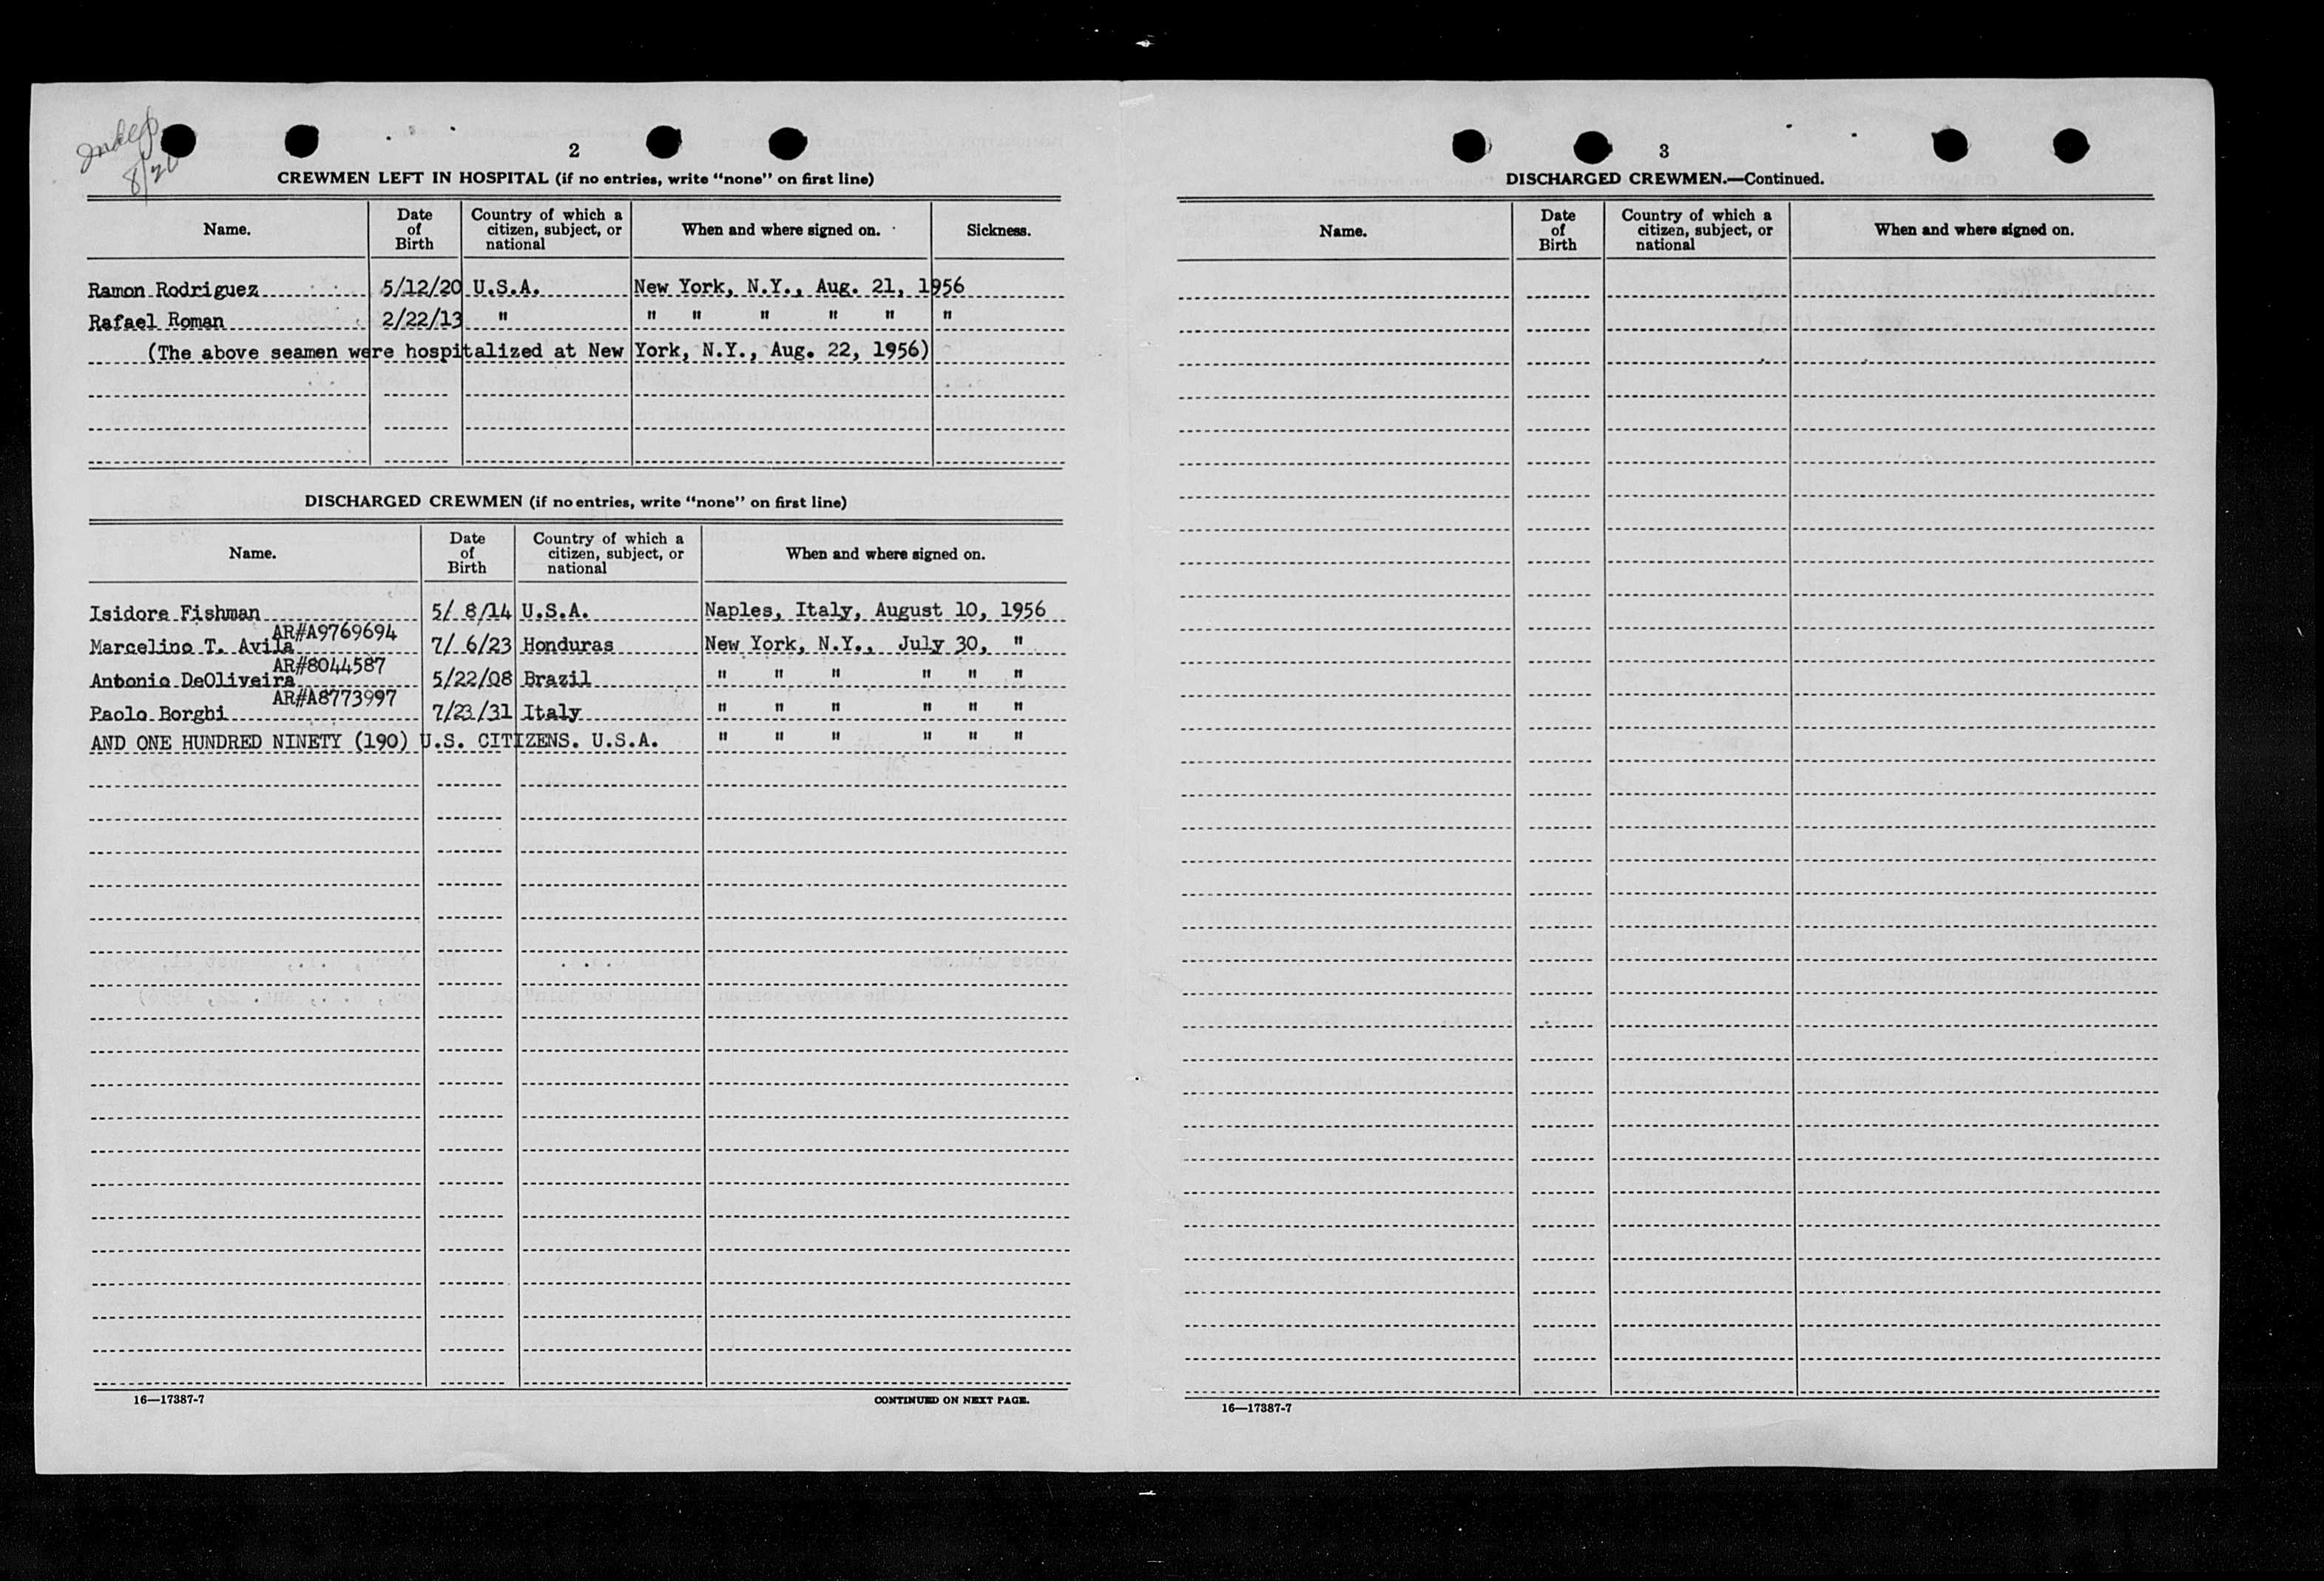 8/26
2
CREWMEN LEFT IN HOSPITAL (if no entries, write “none” on first line)
Name. Date of Birth Country of which a citizen, subject, or national When and where signed on. Sickness.
Ramon Rodriguez 5/12/20 U.S.A. New York, N.Y., Aug. 21, 1956
Rafael Roman 2/22/13 " " " " " " "
(The above seamen were hospitalized at New York, N.Y., Aug. 22, 1956)
DISCHARGED CREWMEN (if no entries, write “none” on first line)
Name. Date of Birth Country of which a citizen, subject, or national When and where signed on.
Isidore Fishman 5/ 8/14 U.S.A. Naples, Italy, August 10, 1956
AR#A9769694
Marcelino T. Avila 7/ 6/23 Honduras New York, N.Y., July 30, "
AR#8044587
Antonio DeOliveira 5/22/08 Brazil " " " " " "
AR#A8773997
Paolo Borghi 7/23/31 Italy " " " " " "
AND ONE HUNDRED NINETY (190) U.S. CITIZENS. U.S.A. " " " " " "
16—17387-7 CONTINUED ON NEXT PAGE.
3
DISCHARGED CREWMEN.—Continued.
Name. Date of Birth Country of which a citizen, subject, or national When and where signed on.
16—17387-7